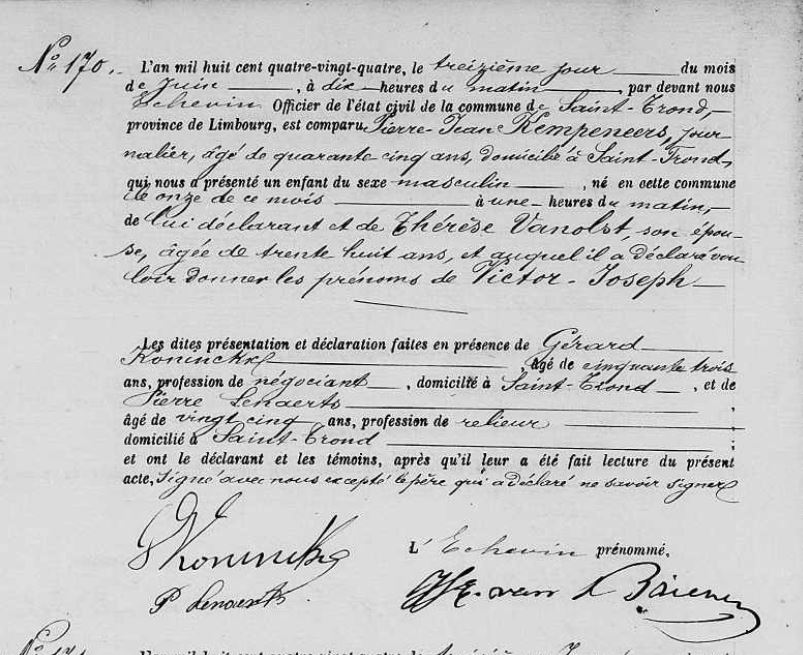 No 170.
L'an mil huit cent quatre-vingt-quatre, le treizième jour du mois
de Juin, à dix heures du matin, par devant nous
Echevin Officier de l'état civil de la commune de Saint-Trond,
province de Limbourg, est comparu Pierre-Jean Kempeneers, jour-
nalier, âgé de quarante cinq ans, domicilié à Saint-Trond,
qui nous a présenté un enfant du sexe masculin, né en cette commune
le onze de ce mois à une heures du matin,
de lui déclarant et de Thérèse Vanolst, son épou-
se, âgée de trente huit ans, et auquel il a déclaré vou-
loir donner les prénoms de Victor-Joseph
Les dites présentation et déclaration faites en présence de Gérard
Koninckx, âgé de cinquante trois
ans, profession de négociant, domicilié à Saint-Trond, et de
Pierre Lenaerts,
âgé de vingt cinq ans, profession de relieur
domicilié à Saint-Trond;
et ont le déclarant et les témoins, après qu'il leur a été fait lecture du présent
acte, signé avec nous excepté le père qui a déclaré ne savoir signer
G Koninckx
L'Echevin prénommé.
P Lenaerts.
van
No 171
L'an mil huit cent quatre-vingt-quatre, le